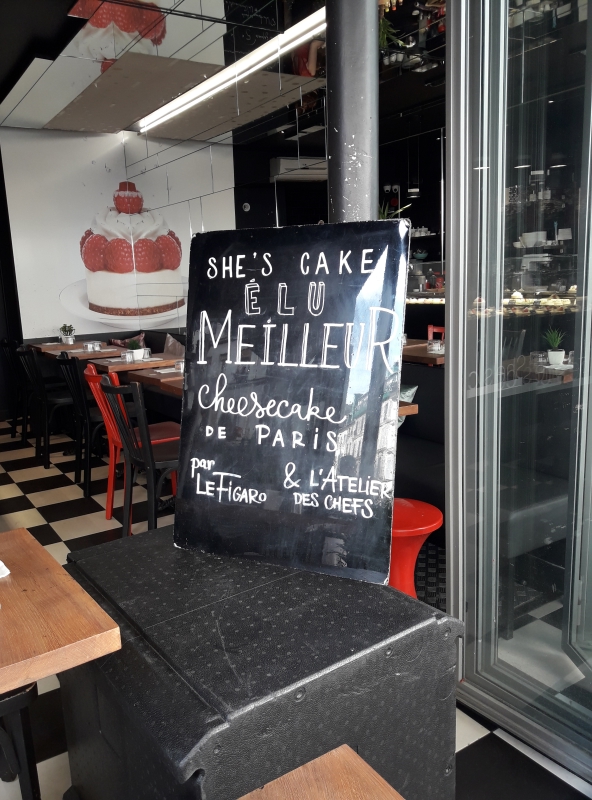 SHE'S CAKE
ÉLU
MEILLEUR
cheesecake
DE PARIS
par
LE FIGARO & L'ATELIER
DES CHEFS